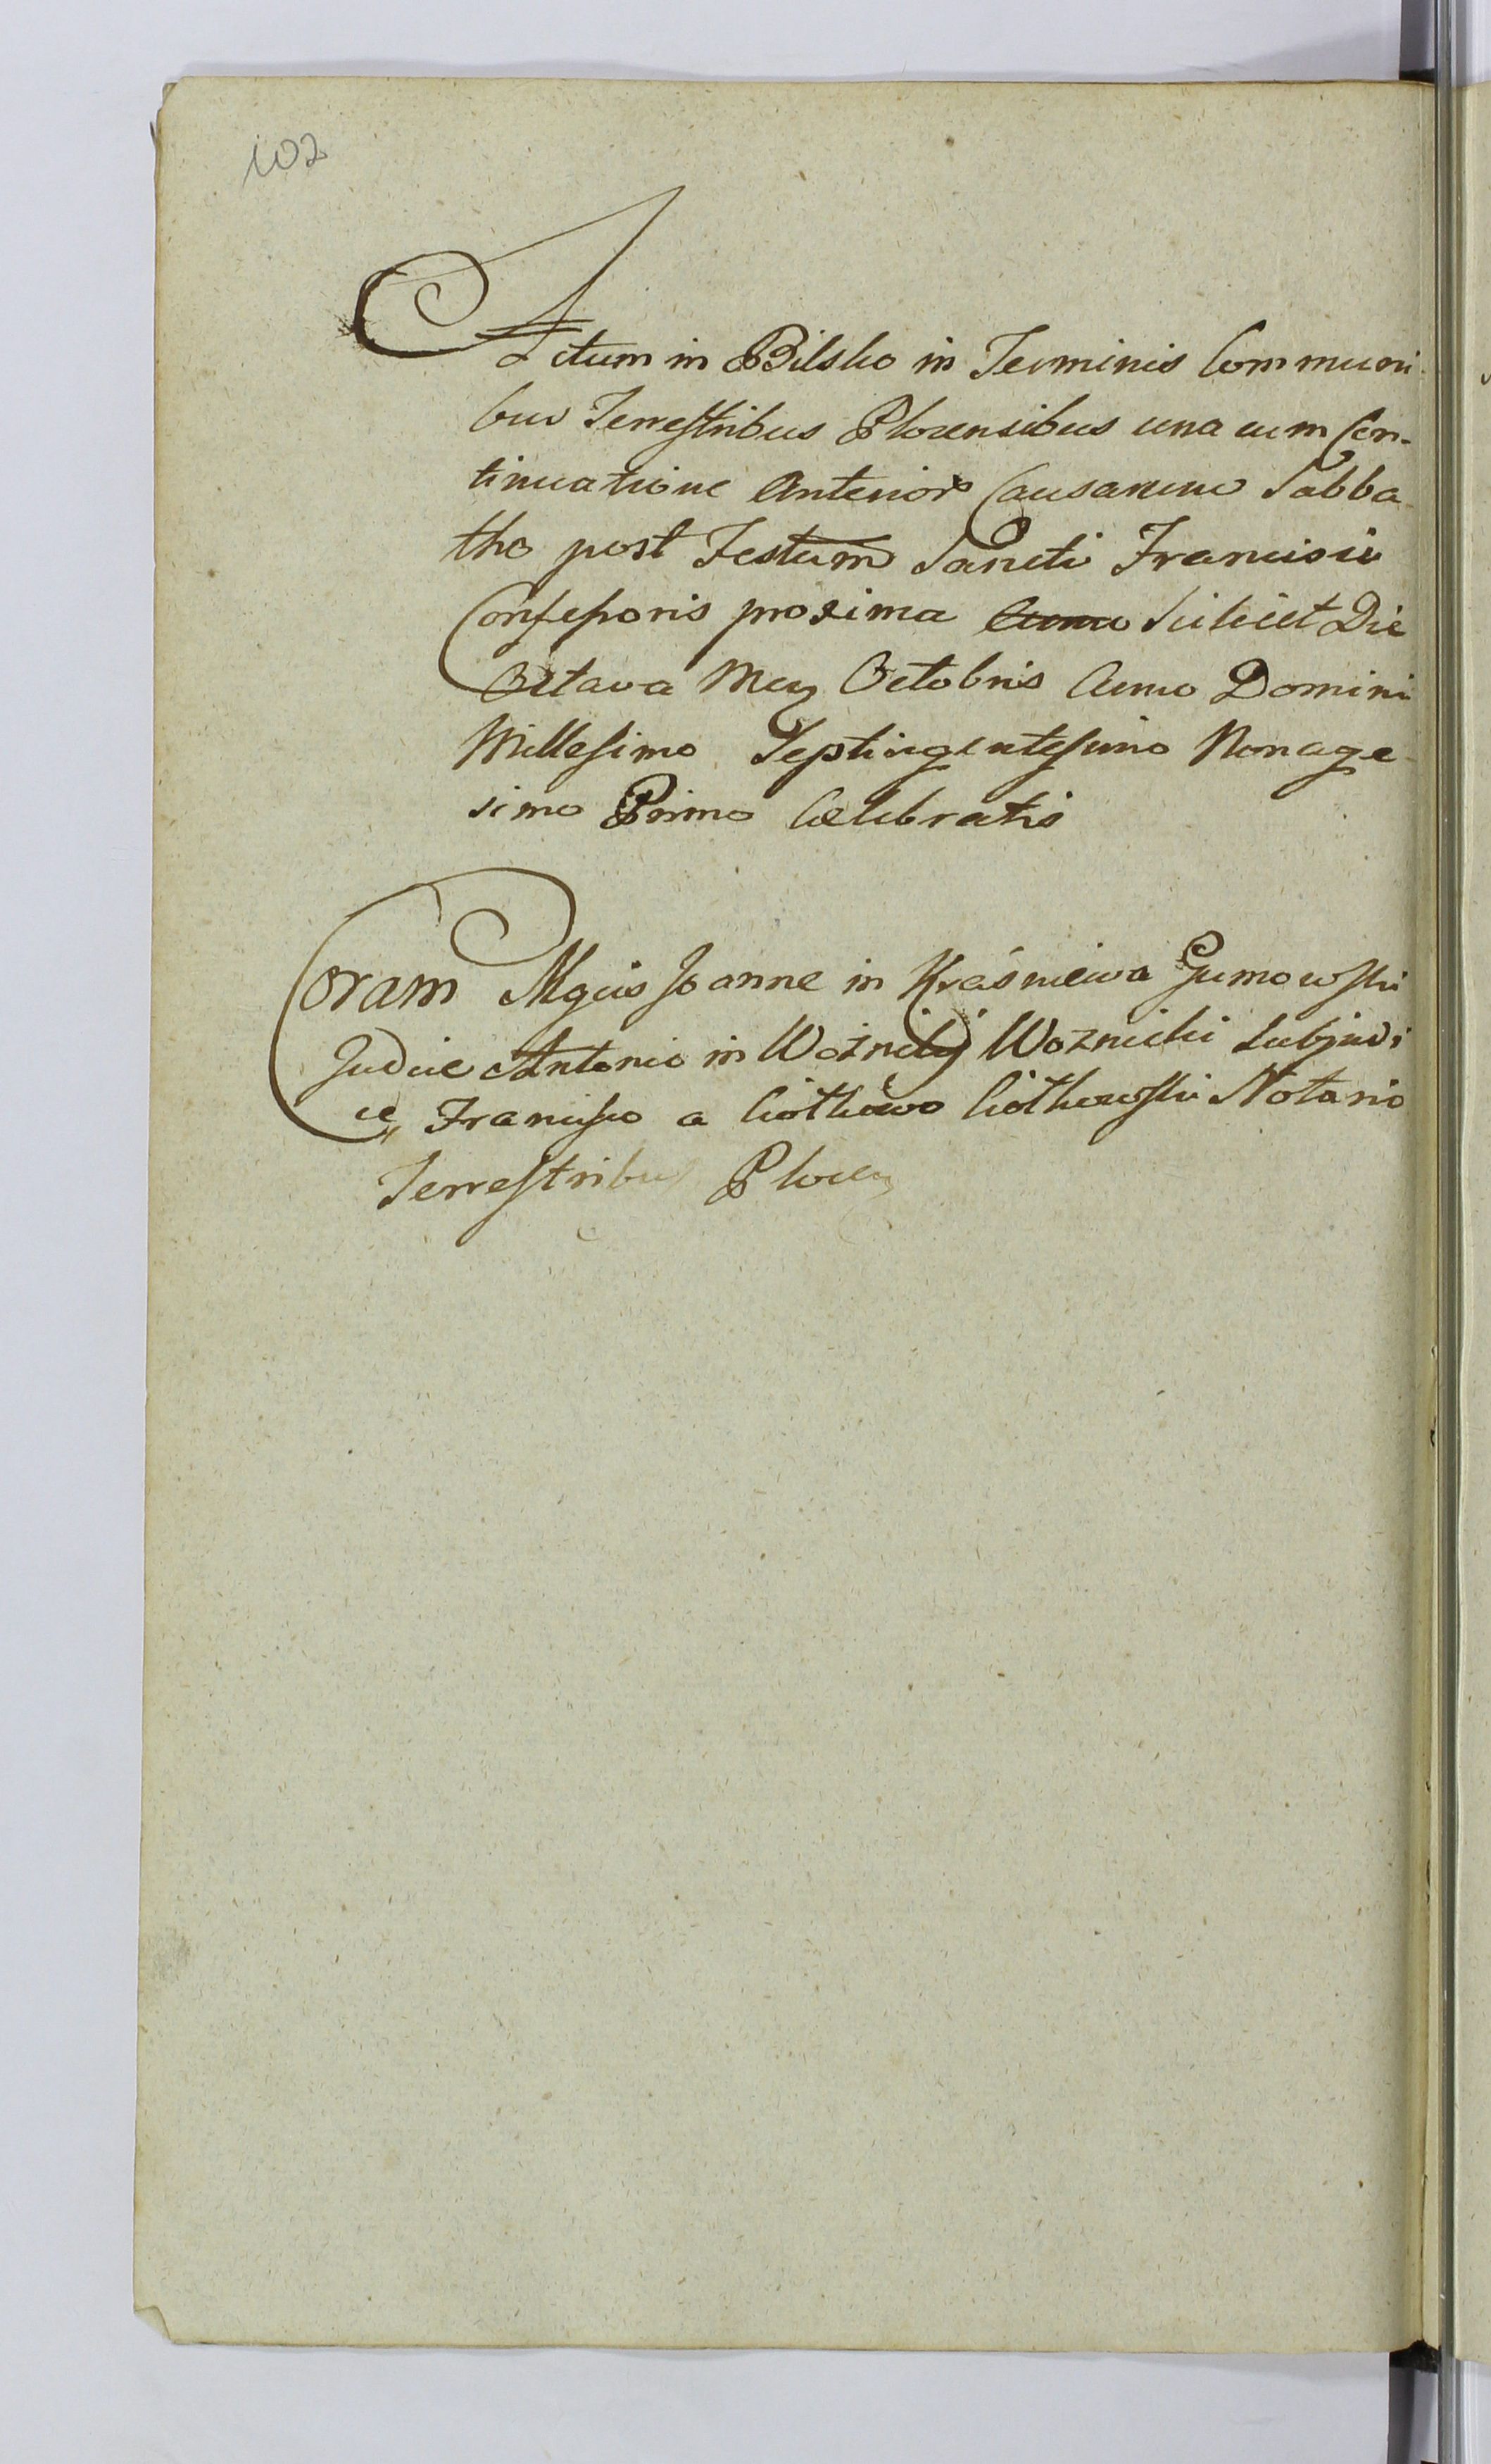 102
Actum in Bilsko in Terminis Communi
bus Terrestribus Plocensibus una cum Con-
tinuatione Anterior Causarum Sabba
tho post Festum Sancti Francisci
Confessoris proxima Anno Scilicet Die
Octava Mey Octobris Anno Domini
Millesimo Septingentesimo Nonage
simo Primo Celebratis
Coram Mgcis Joanne in Kraśniewa Gumowski
Judice Antonio in Woźniki Woznicki Subjudi
ce, Francisco a Ciołkowo Ciołkowski Notario
Terrestribus Plocen